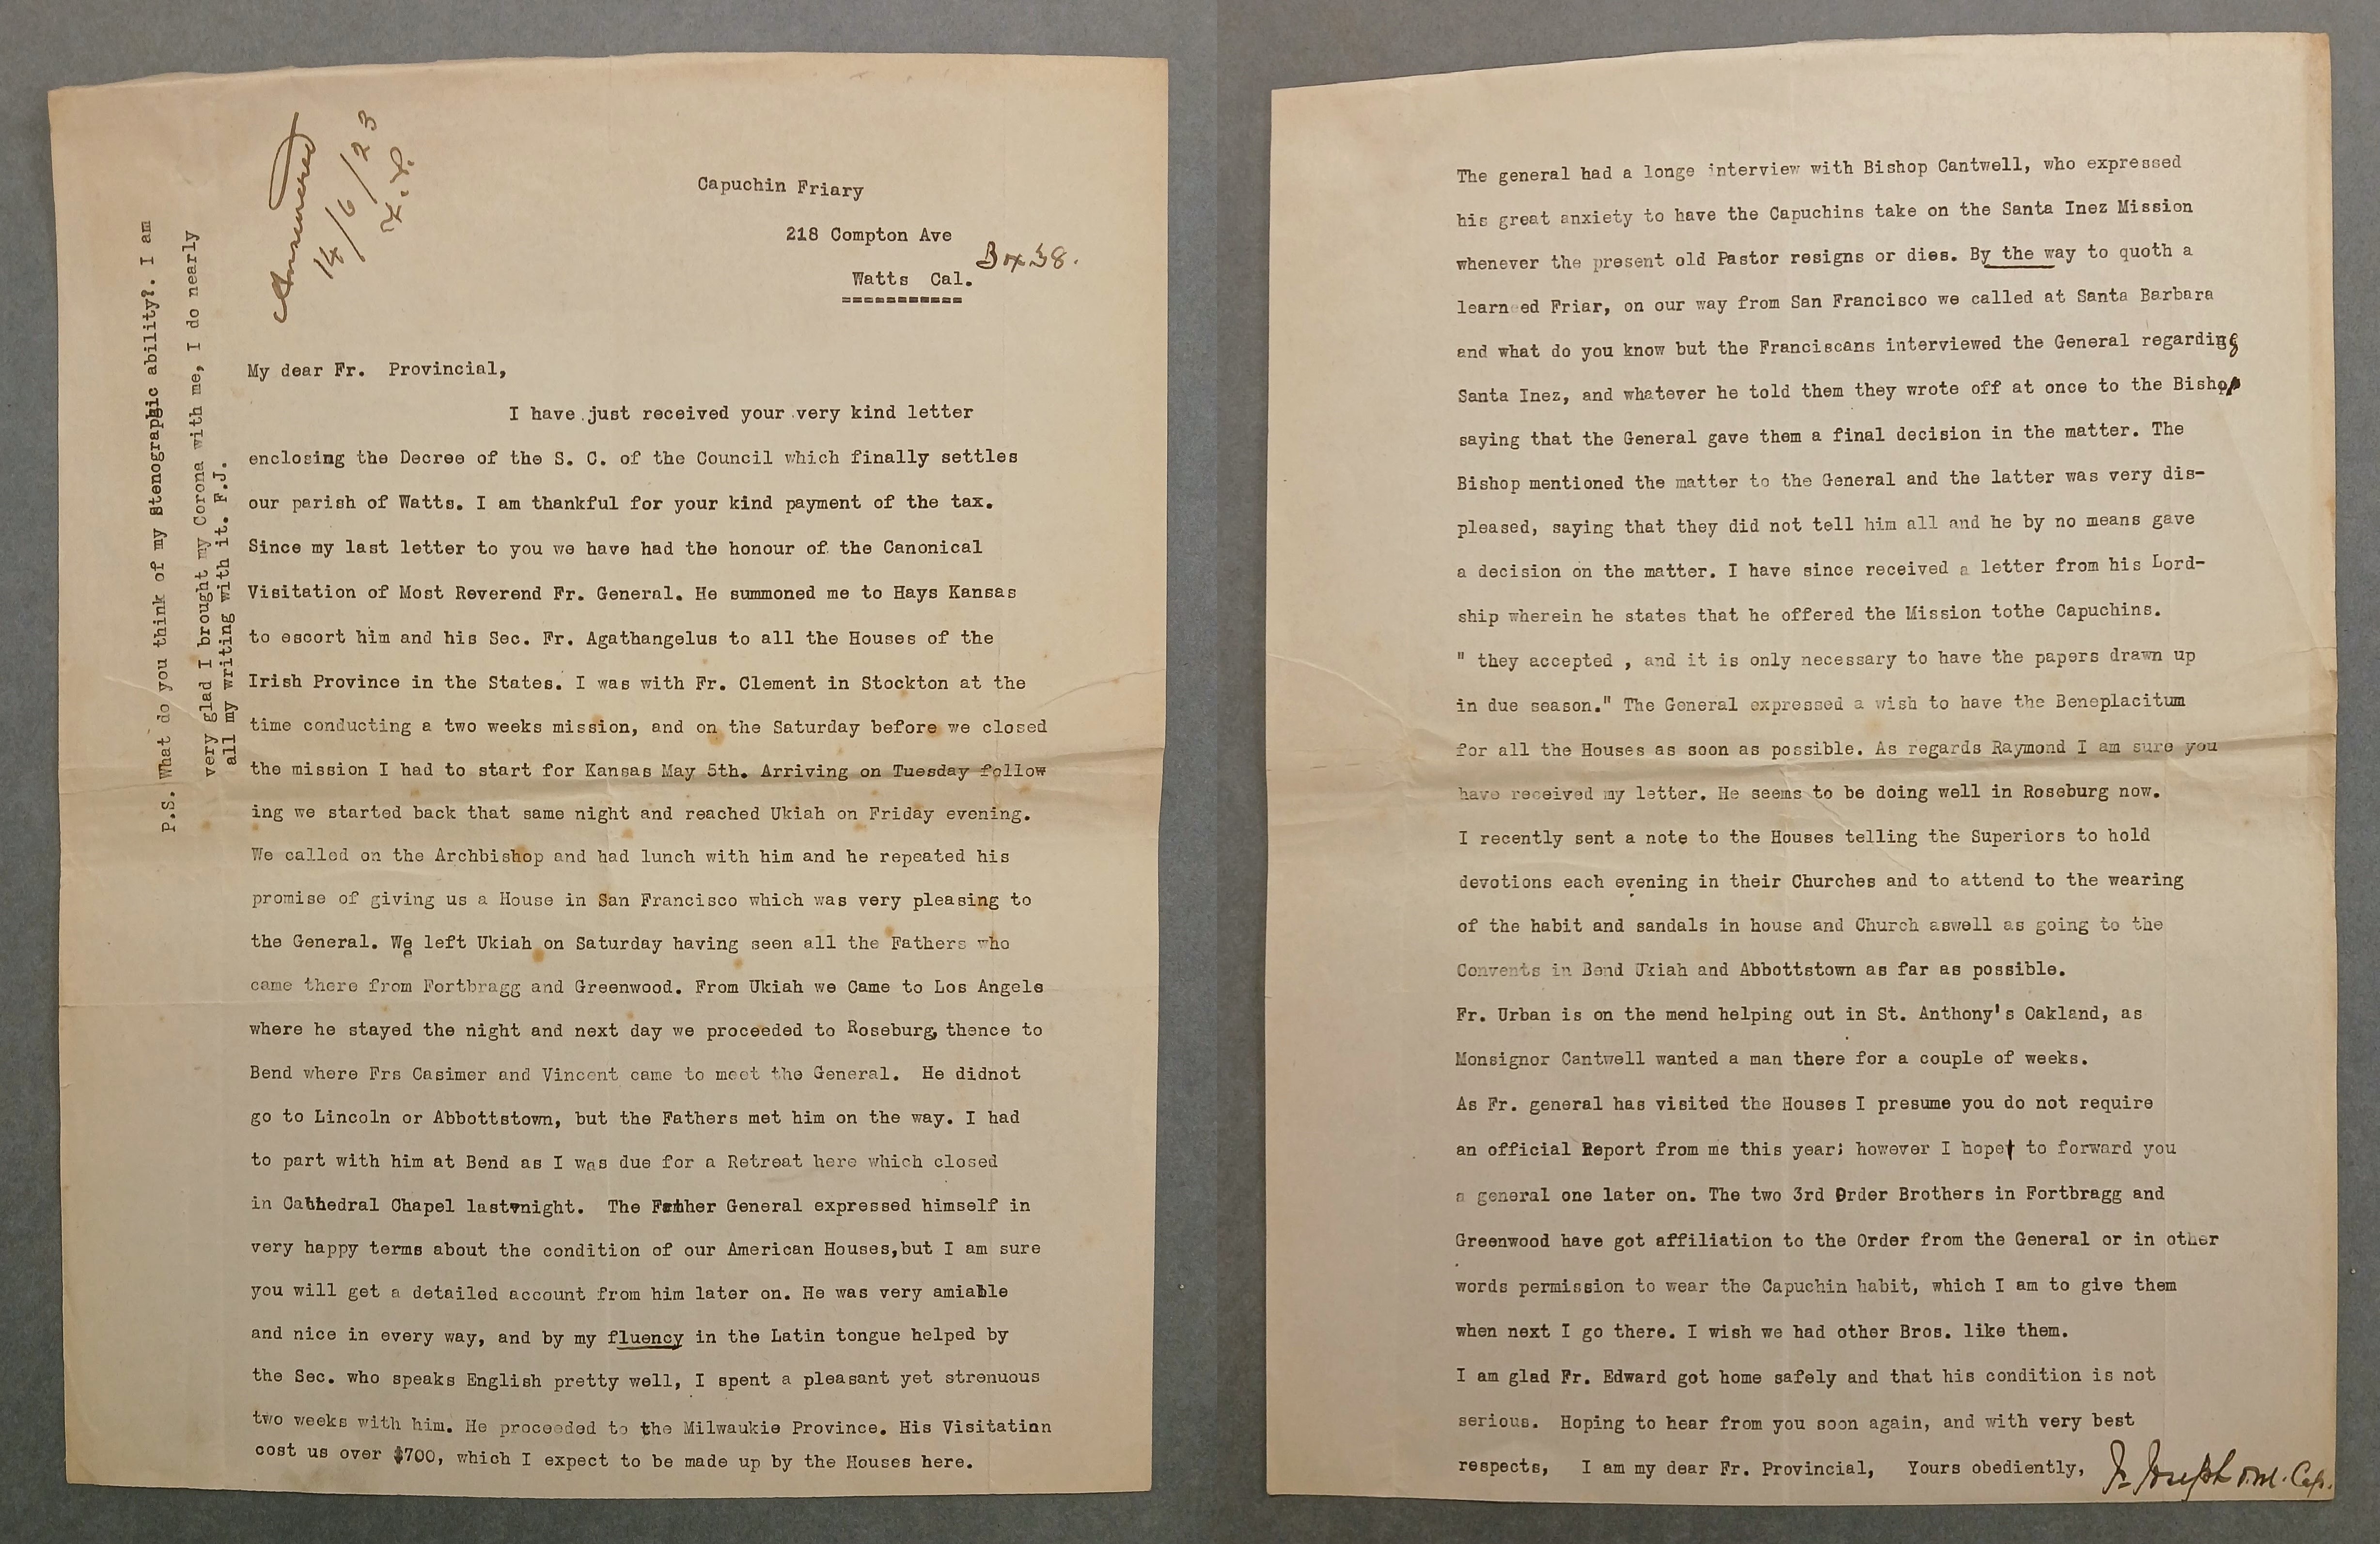 Answered
14/6/23
Capuchin Friary
218 Compton Ave
Box 38.
Watts Cal.
===========
My dear Fr. Provincial,
I have just received your very kind letter
enclosing the Decree of the S. C. of the Council which finally settles
our parish of Watts. I am thankful for your kind payment of the tax.
Since my last letter to you we have had the honour of the Canonical
Visitation of Most Reverend Fr. General. He summoned me to Hays Kansas
to escort him and his Sec. Fr. Agathangelus to all the Houses of the
Irish Province in the States. I was with Fr. Clement in Stockton at the
time conducting a two weeks mission, and on the Saturday before we closed
the mission I had to start for Kansas May 5th. Arriving on Tuesday follow
ing we started back that same night and reached Ukiah on Friday evening.
We called on the Archbishop and had lunch with him and he repeated his
promise of giving us a House in San Francisco which was very pleasing to
the General. We left Ukiah on Saturday having seen all the Fathers who
came there from Fortbragg and Greenwood. From Ukiah we Came to Los Angels
where he stayed the night and next day we proceeded to Roseburg, thence to
Bend where Frs Casimer and Vincent came to meet the General. He didnot
go to Lincoln or Abbottstown, but the Fathers met him on the way. I had
to part with him at Bend as I was due for a Retreat here which closed
in Cathedral Chapel last night. The Father General expressed himself in
very happy terms about the condition of our American Houses,but I am sure
you will get a detailed account from him later on. He was very amiable
and nice in every way, and by my fluency in the Latin tongue helped by
the Sec. who speaks English pretty well, I spent a pleasant yet strenuous
two weeks with him. He proceeded to the Milwaukie Province. His Visitatinn
cost us over $700, which I expect to be made up by the Houses here.
P.S. What do you think of my stenographic ability?. I am
very glad I brought my Corona with me, I do nearly
all my writing with it. F.J.
The general had a longe interview with Bishop Cantwell, who expressed
his great anxiety to have the Capuchins take on the Santa Inez Mission
whenever the present old Pastor resigns or dies. By the way to quoth a
learn ed Friar, on our way from San Francisco we called at Santa Barbara
and what do you know but the Franciscans interviewed the General regarding
Santa Inez, and whatever he told them they wrote off at once to the Bishop
saying that the General gave them a final decision in the matter. The
Bishop mentioned the matter to the General and the latter was very dis-
pleased, saying that they did not tell him all and he by no means gave
a decision on the matter. I have since received a letter from his Lord-
ship wherein he states that he offered the Mission tothe Capuchins.
" they accepted , and it is only necessary to have the papers drawn up
in due season." The General expressed a wish to have the Beneplacitum
for all the Houses as soon as possible. As regards Raymond I am sure you
have received my letter. He seems to be doing well in Roseburg now.
I recently sent a note to the Houses telling the Superiors to hold
devotions each evening in their Churches and to attend to the wearing
of the habit and sandals in house and Church aswell as going to the
Convents in Bend Ukiah and Abbottstown as far as possible.
Fr. Urban is on the mend helping out in St. Anthony's Oakland, as
Monsignor Cantwell wanted a man there for a couple of weeks.
As Fr. general has visited the Houses I presume you do not require
an official Report from me this year; however I hope to forward you
a general one later on. The two 3rd Order Brothers in Fortbragg and
Greenwood have got affiliation to the Order from the General or in other
words permission to wear the Capuchin habit, which I am to give them
when next I go there. I wish we had other Bros. like them.
I am glad Fr. Edward got home safely and that his condition is not
serious. Hoping to hear from you soon again, and with very best
respects, I am my dear Fr. Provincial, Yours obediently, Fr Joseph O.M. Cap.